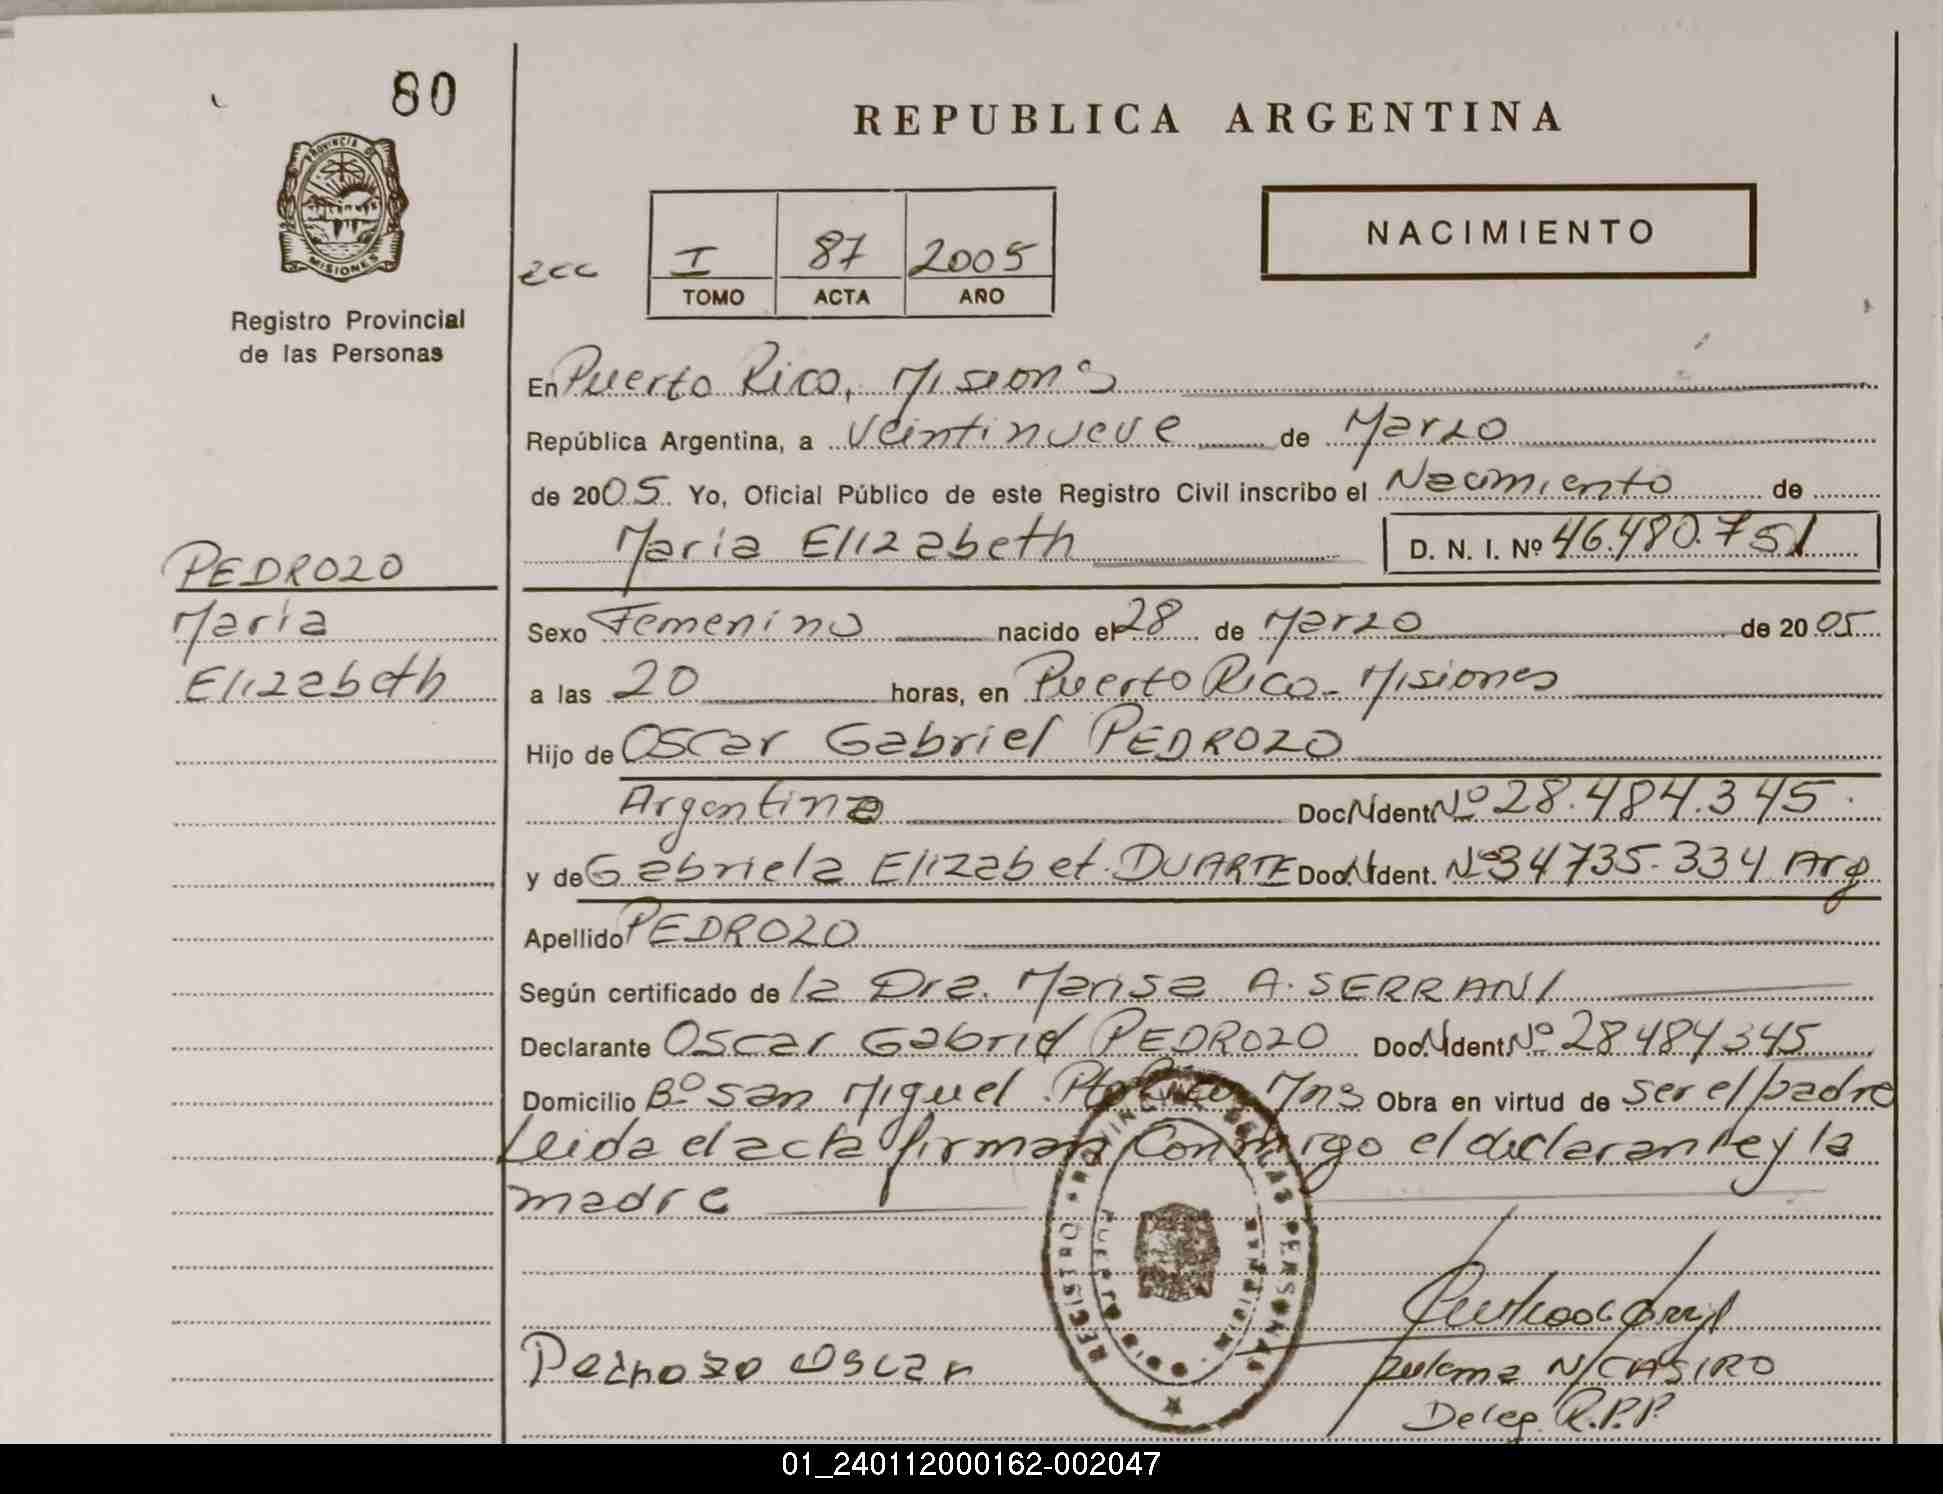 80
PROVINCIA DE
MISIONES
Registro Provincial
de las Personas
REPUBLICA ARGENTINA
NACIMIENTO
I 87 2005
TOMO ACTA AÑO
En Puerto Rico, Misiones
República Argentina, a veintinueve de Marzo
de 2005 Yo, Oficial Público de este Registro Civil inscribo el Nacimiento de
Maria Elizabeth D. N. I. Nº 46.480.751
PEDROZO
Maria
Elizabeth
Sexo Femenino nacido el 28 de Marzo de 2005
a las 20 horas, en Puerto Rico - Misiones
Hijo de Oscar Gabriel PEDROZO
Argentino Doc. Ident. Nº 28.484.345
y de Gabriela Elizabet DUARTE Doc. Ident. Nº 34735.334 Arg
Apellido PEDROZO
Según certificado de la Dra. Marisa A. SERRANI
Declarante Oscar Gabriel PEDROZO Doc. Ident. Nº 28484345
Domicilio Bº San Miguel Pto Rico Mns Obra en virtud de ser el padre
Leida el acta firman conmigo el declarante y la
madre
REGISTRO PROVINCIAL DE LAS PERSONAS
PUERTO RICO MISIONES
Pedrozo Oscar
Zulema N CASIRO
Deleg. R.P.P.
01_240112000162-002047